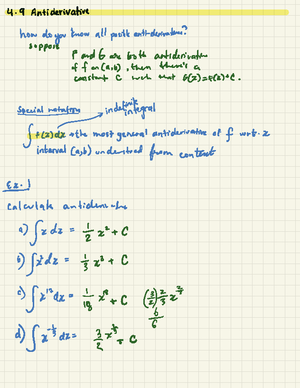 4.9 Antiderivative
how do you know all posible anti-derivatives?
suppose
F and G are both antiderivative
of f on (a,b), then there's a
constant C such that G(x)=F(x)+C.
Special notation
indefinite
integral
∫ f(x)dx = the most general antiderivative of f w.r.t. x
interval (a,b) understood from context
Ex. 1
calculate
a) ∫ x dx = 1/2 x² + C
b) ∫ x² dx = 1/3 x³ + C
c) ∫ x¹⁷ dx = 1/18 x¹⁸ + C
6/6
d) ∫ x^(-1/3) dx = 3/2 + C